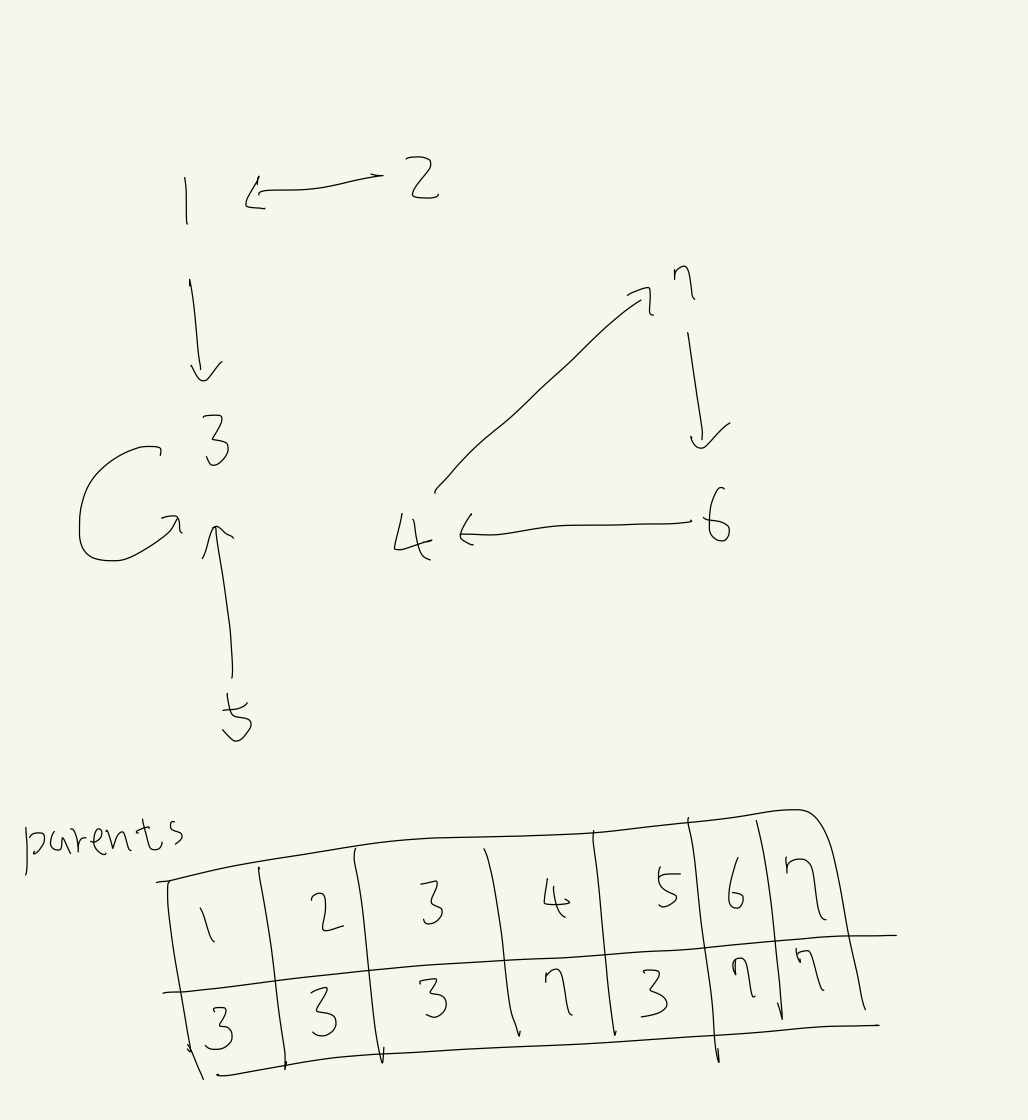 1 2
7
3
4 6
5
parents
1 2 3 4 5 6 7
3 3 3 7 3 7 7